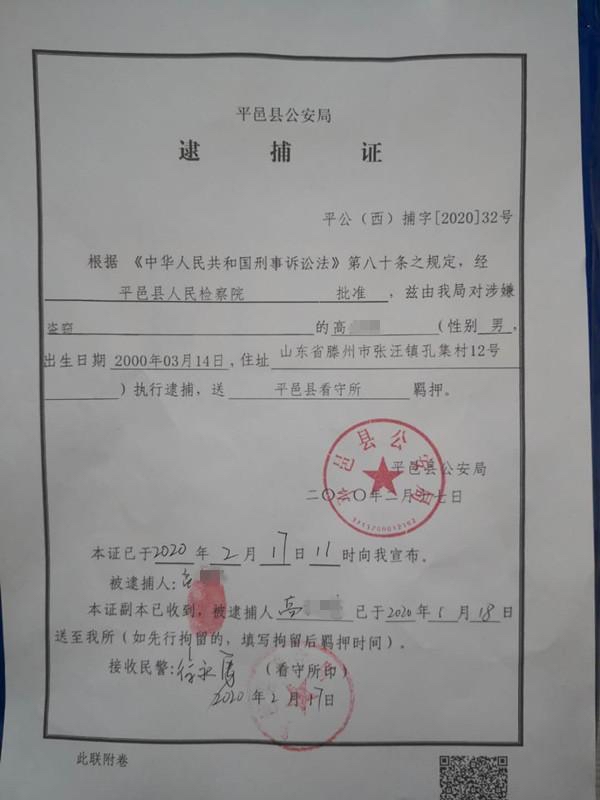 平邑县公安局
逮捕证
平公（西）捕字[2020]32号
根据《中华人民共和国刑事诉讼法》第八十条之规定，经
平邑县人民检察院 批准，兹由我局对涉嫌
盗窃 的高 （性别 男，
出生日期 2000年03月14日，住址 山东省滕州市张汪镇孔集村12号
）执行逮捕，送 平邑县看守所 羁押。
平邑县公安局
二〇二〇年二月十七日
本证已于2020年2月17日11时向我宣布。
被逮捕人：高
本证副本已收到，被逮捕人高 已于2020年1月18日
送至我所（如先行拘留的，填写拘留后羁押时间）。
接收民警： （看守所印）
2020年2月17日
此联附卷